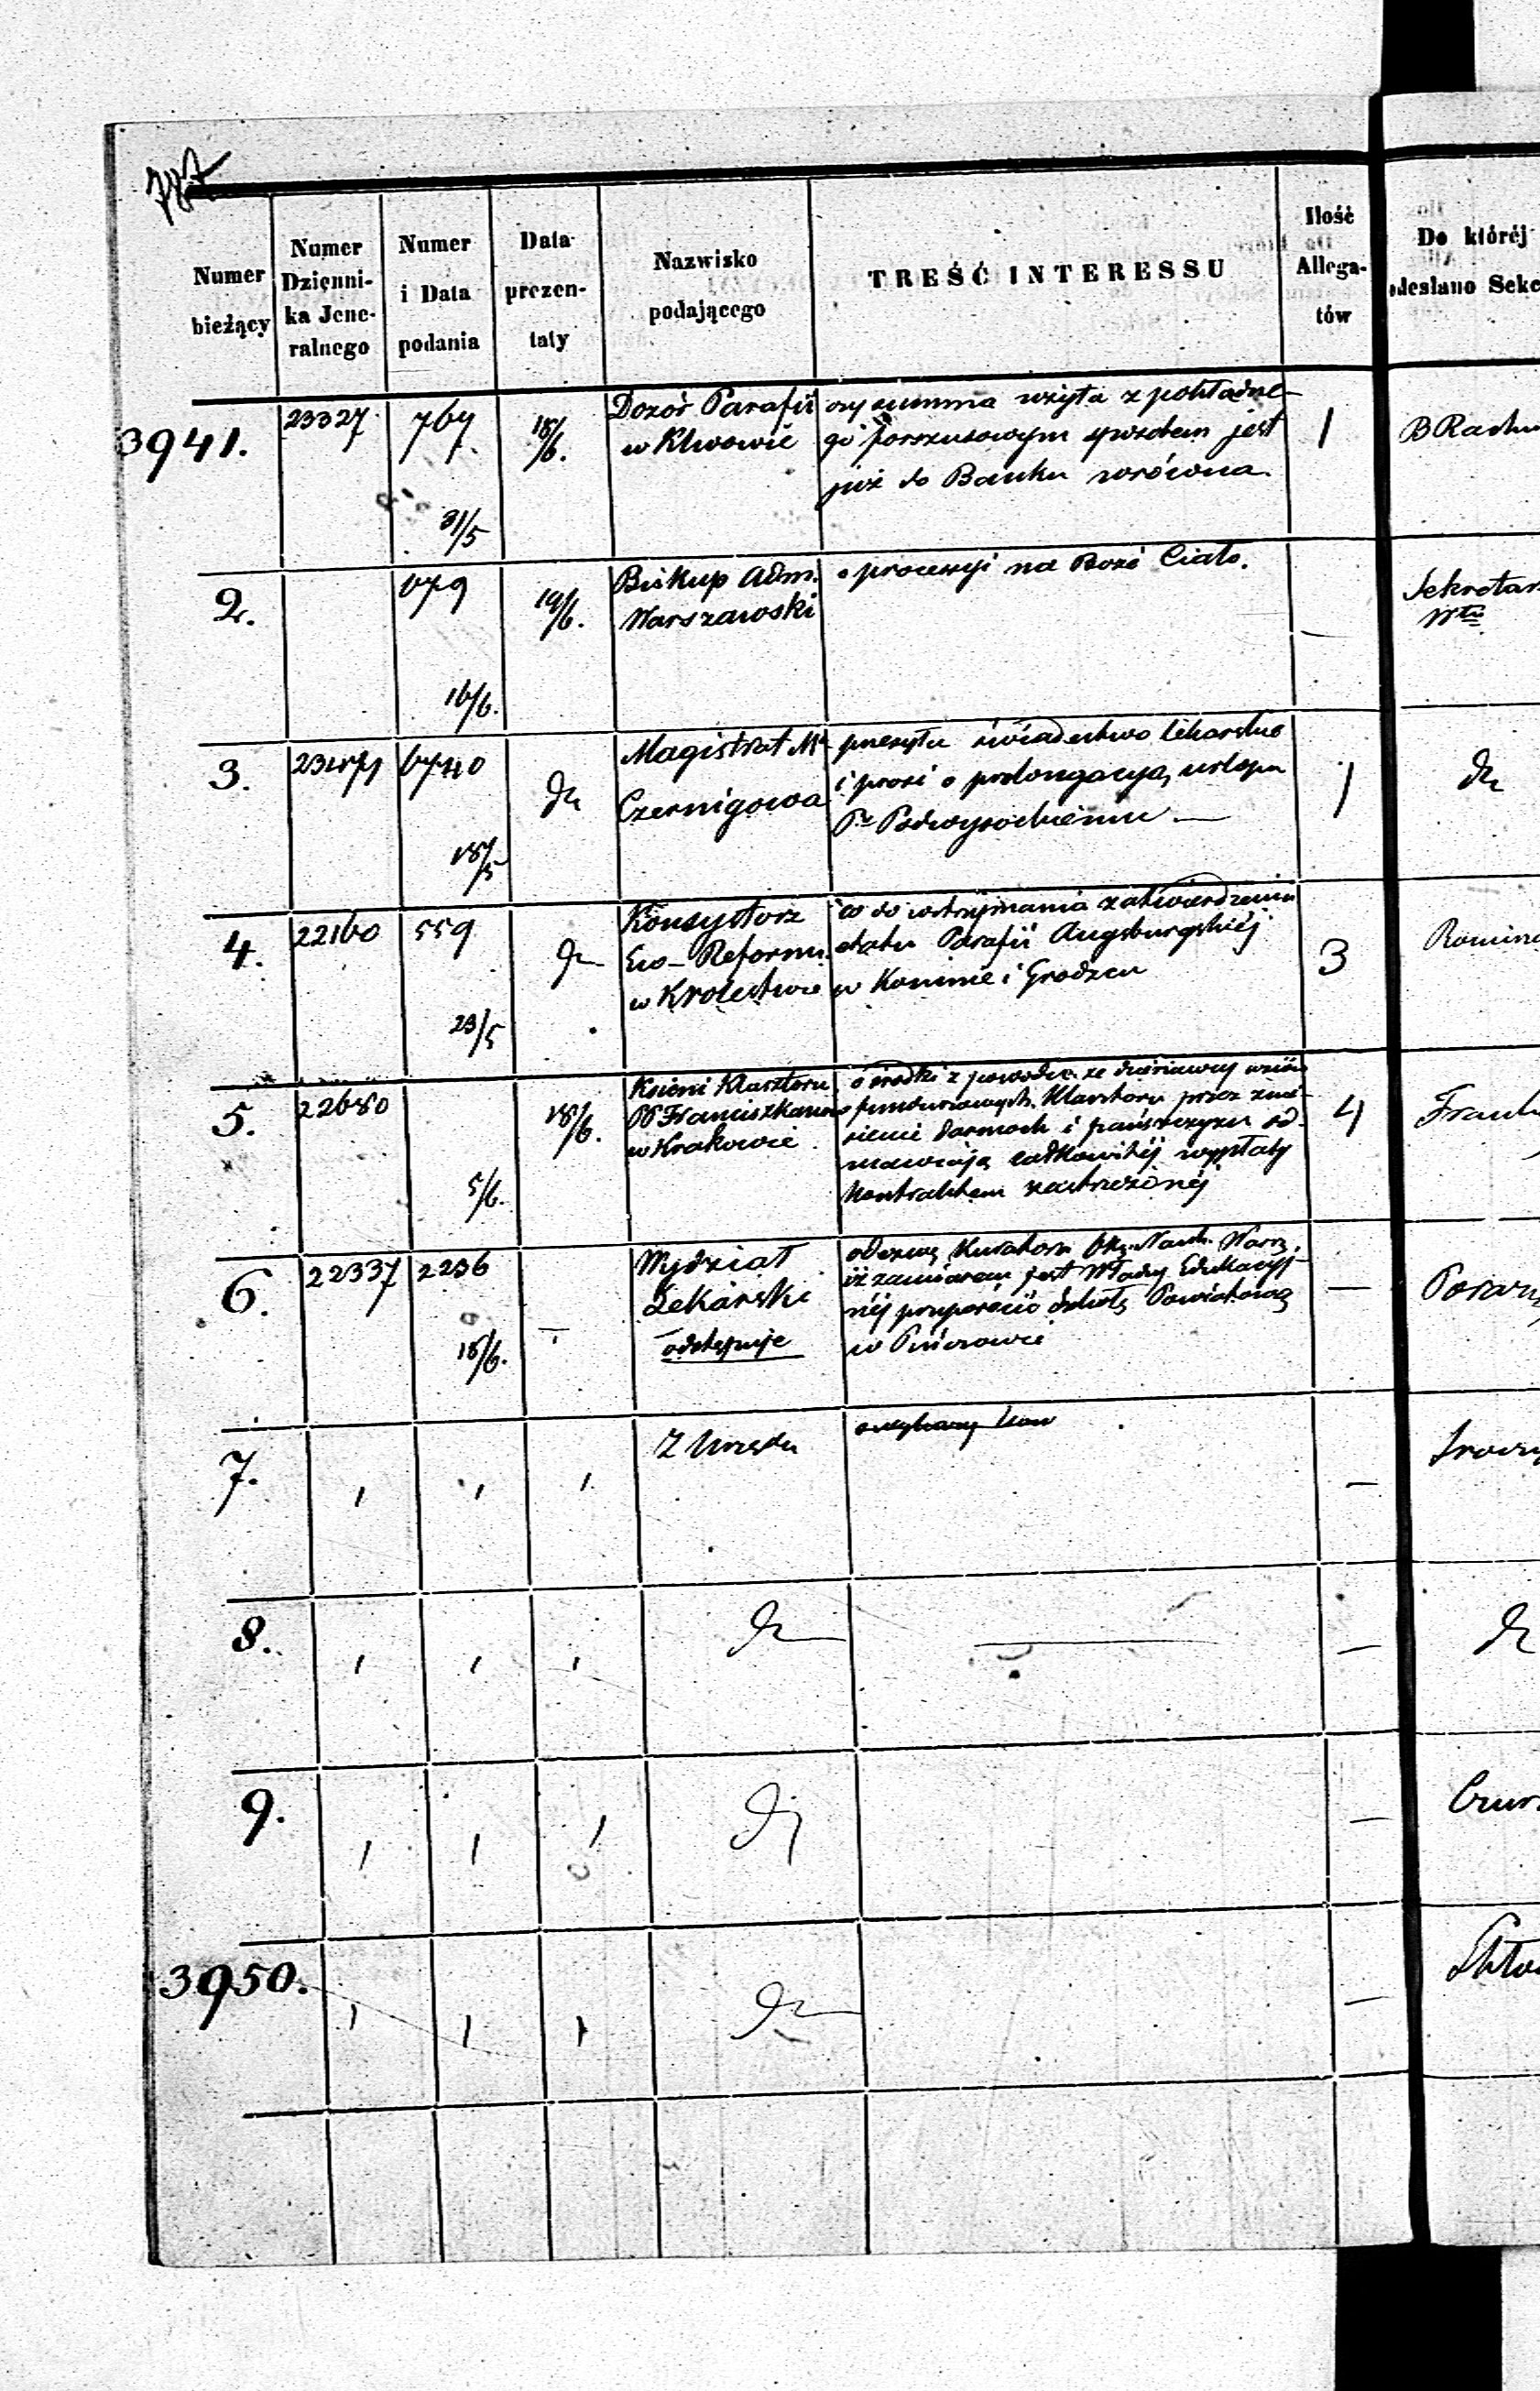 787
Numer
bieżący
Numer
Dzienni-
ka Jene-
ralnego
Numer
i Data
podania
Data
prezen-
taty
Nazwisko
podającego
TREŚĆ INTERESSU
Ilość
Allega-
tów
Do któréj
odesłano Sekc
3941.
23327
767.
31/5
18/6.
Dozór Parafii
w Klwowie
czy summa wzięta z pokładne-
go forszusowym sposobem jest
już do Banku zwrócona.
1
B Rachu
2.
679
16/6.
19/6.
Biskup Adm.
Warszawski
o processyi na Boże Ciało.
Sekretar
3.
6740
18/5
Magistrat Mta
Czernigowa
przesyła świadectwo lekarskie
i prosi o prolongacyą urlopu
Pu Podwysockiemu
1
4.
22160
559
23/5
Konsystorz
Ew-Reform.
w Królestwie
co do wstrzymania zatwierdzenia
etatu Parafii Augsburgskiéj
w Koninie i Grodzcu
3
5.
22680
5/6.
18/6.
Ksieni Klasztoru
PP Franciszkanek
w Krakowie
o środki z powodu że dzierżawcy
funduszowych Klasztoru przez znie-
sienie darmoch i pańszczyzn od-
mawiają całkowitéj wypłaty
kontraktem zastrzeżonéj
4
6.
22337
2236
18/6.
Wydział
Lekarski
odstępuje
odezwę Kuratora Okg. Nauk. Warsz.
iż zamiarem jest Władzy Edukacyj-
néj przywrócić Szkołę Powiatową
w
7.
Z Urzędu
8.
9.
3950.